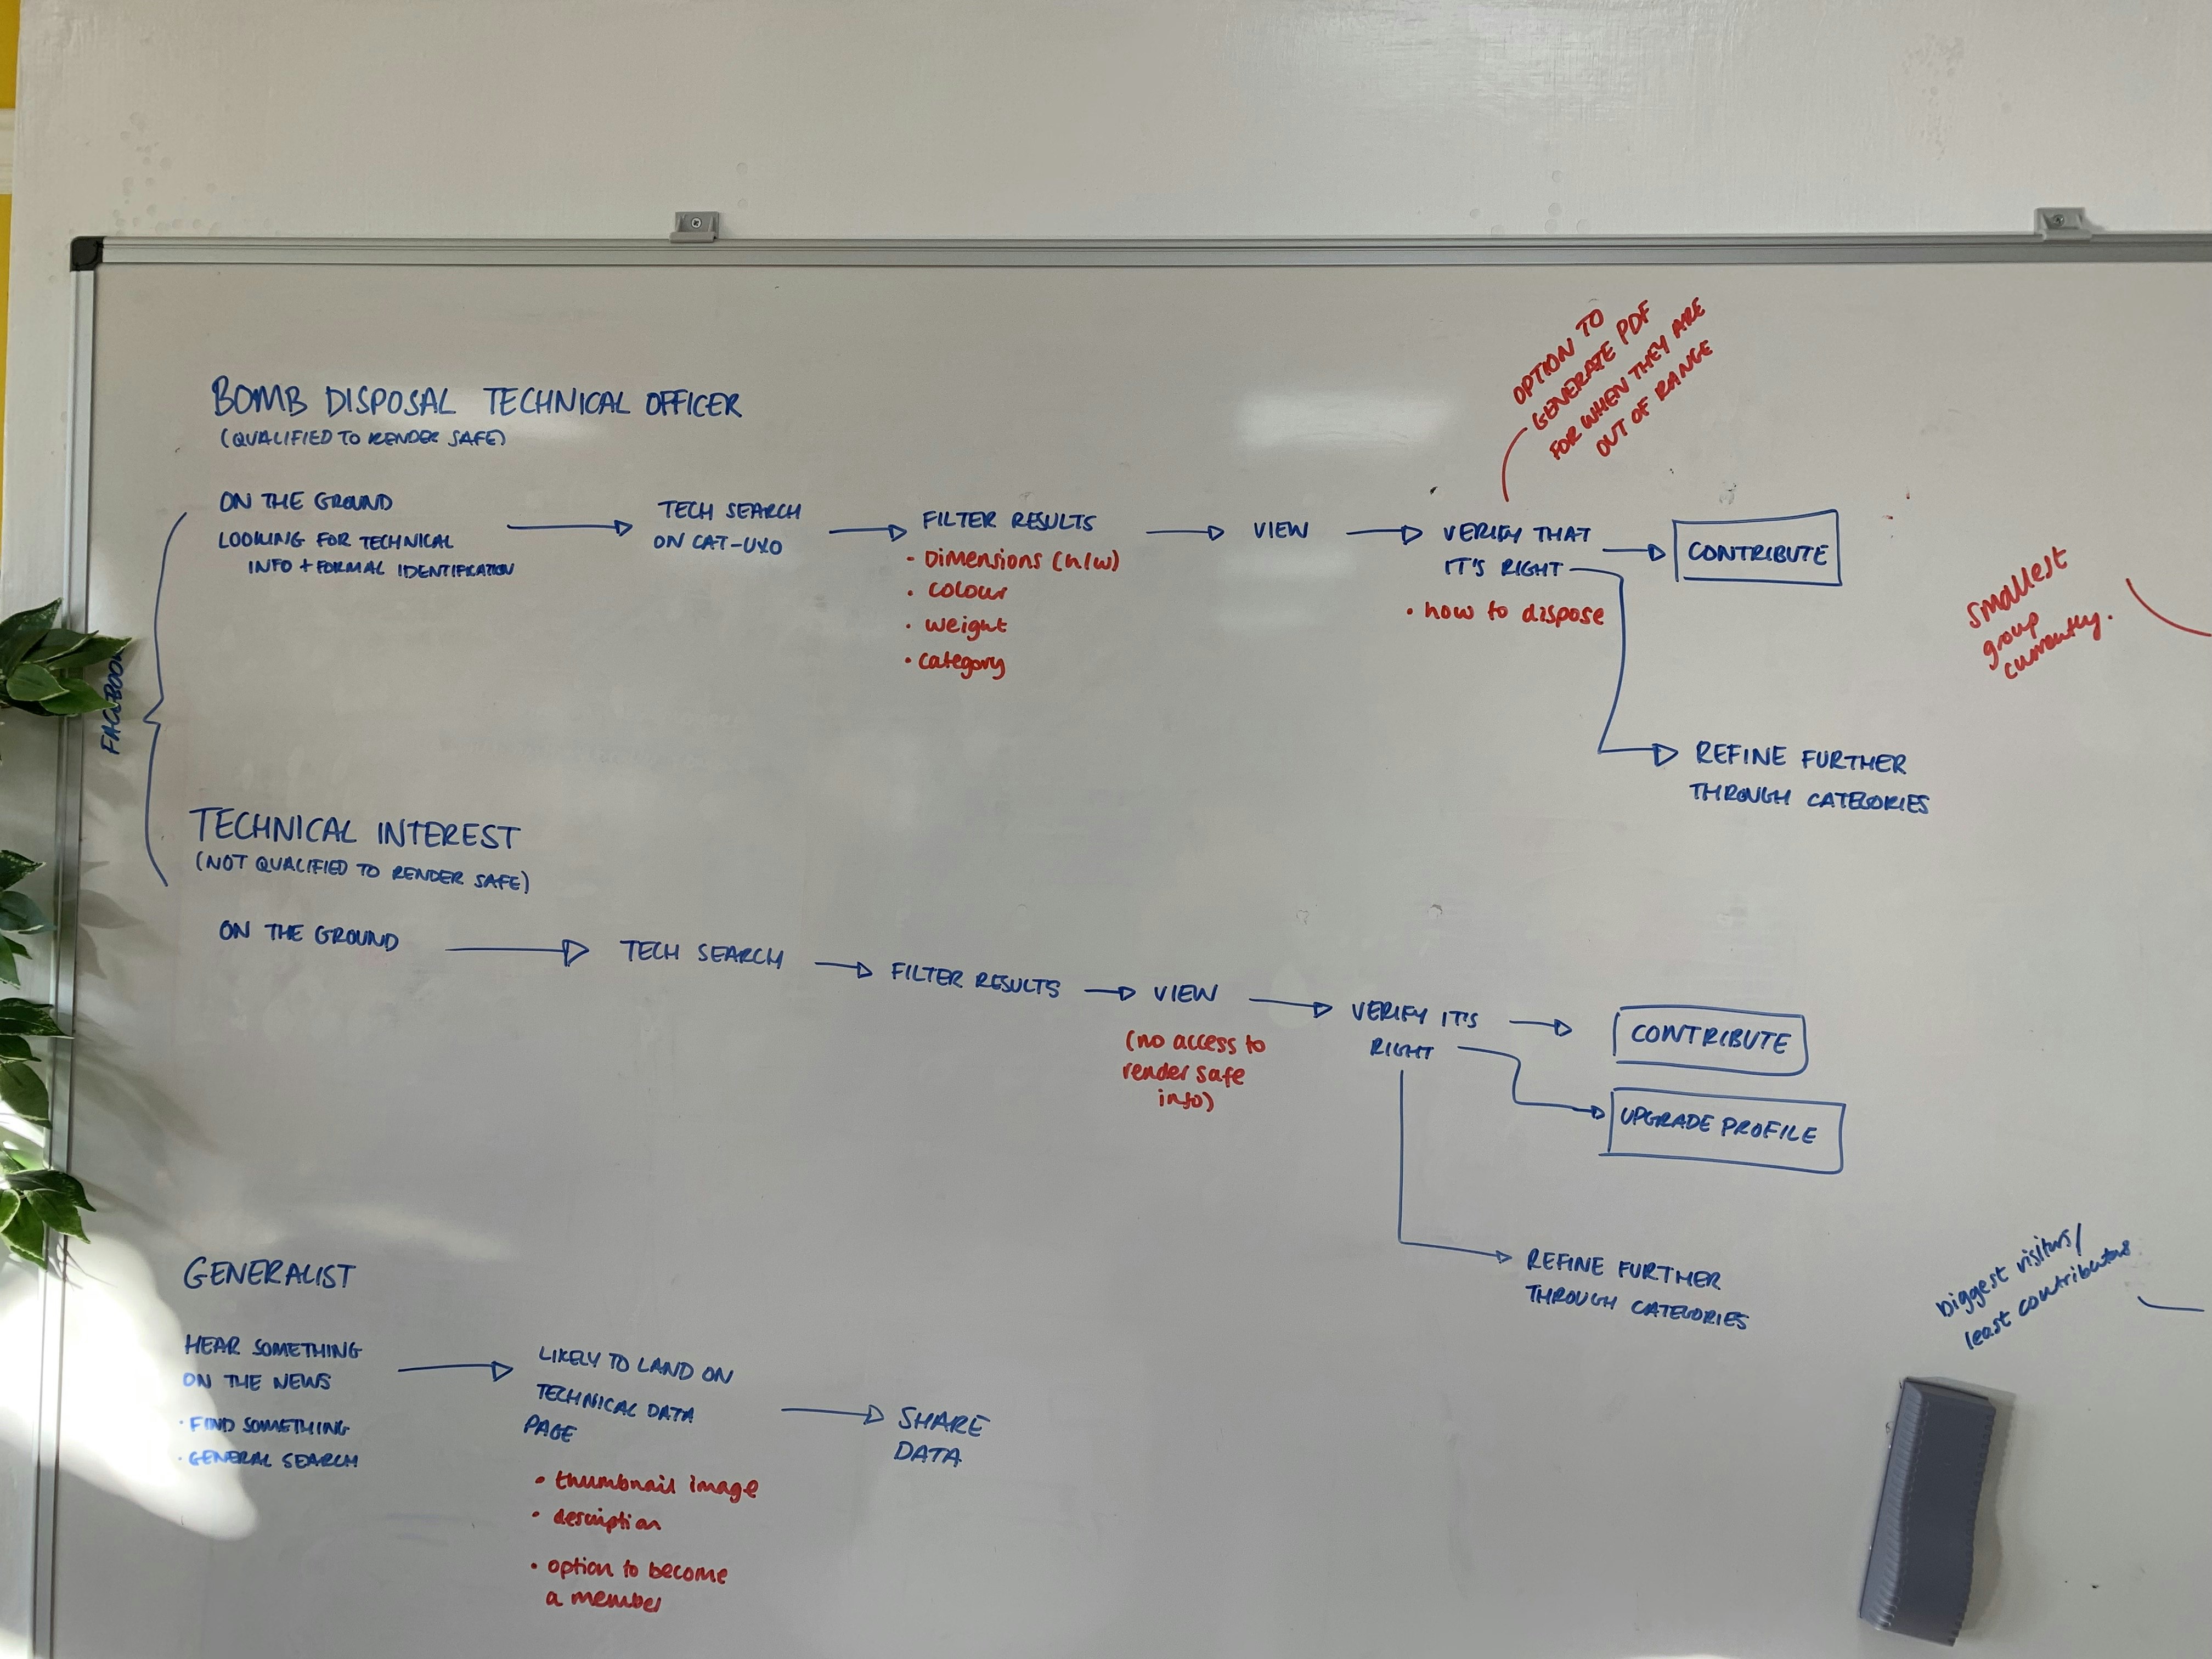 OPTION TO
GENERATE PDF
FOR WHEN THEY ARE
OUT OF RANGE
BOMB DISPOSAL TECHNICAL OFFICER
(QUALIFIED TO RENDER SAFE)
FACEBOOK
ON THE GROUND
LOOKING FOR TECHNICAL
INFO + FORMAL IDENTIFICATION
TECH SEARCH
ON CAT-UXO
FILTER RESULTS
• Dimensions (h/w)
• colour
• weight
• category
VIEW
VERIFY THAT
IT'S RIGHT
• how to dispose
CONTRIBUTE
REFINE FURTHER
THROUGH CATEGORIES
smallest
group
currently.
TECHNICAL INTEREST
(NOT QUALIFIED TO RENDER SAFE)
ON THE GROUND
TECH SEARCH
FILTER RESULTS
VIEW
(no access to
render safe
info)
VERIFY IT'S
RIGHT
CONTRIBUTE
UPGRADE PROFILE
REFINE FURTHER
THROUGH CATEGORIES
GENERALIST
HEAR SOMETHING
ON THE NEWS
• FIND SOMETHING
• GENERAL SEARCH
LIKELY TO LAND ON
TECHNICAL DATA
PAGE
• thumbnail image
• description
• option to become
a member
SHARE
DATA
Biggest visitors/
least contributors